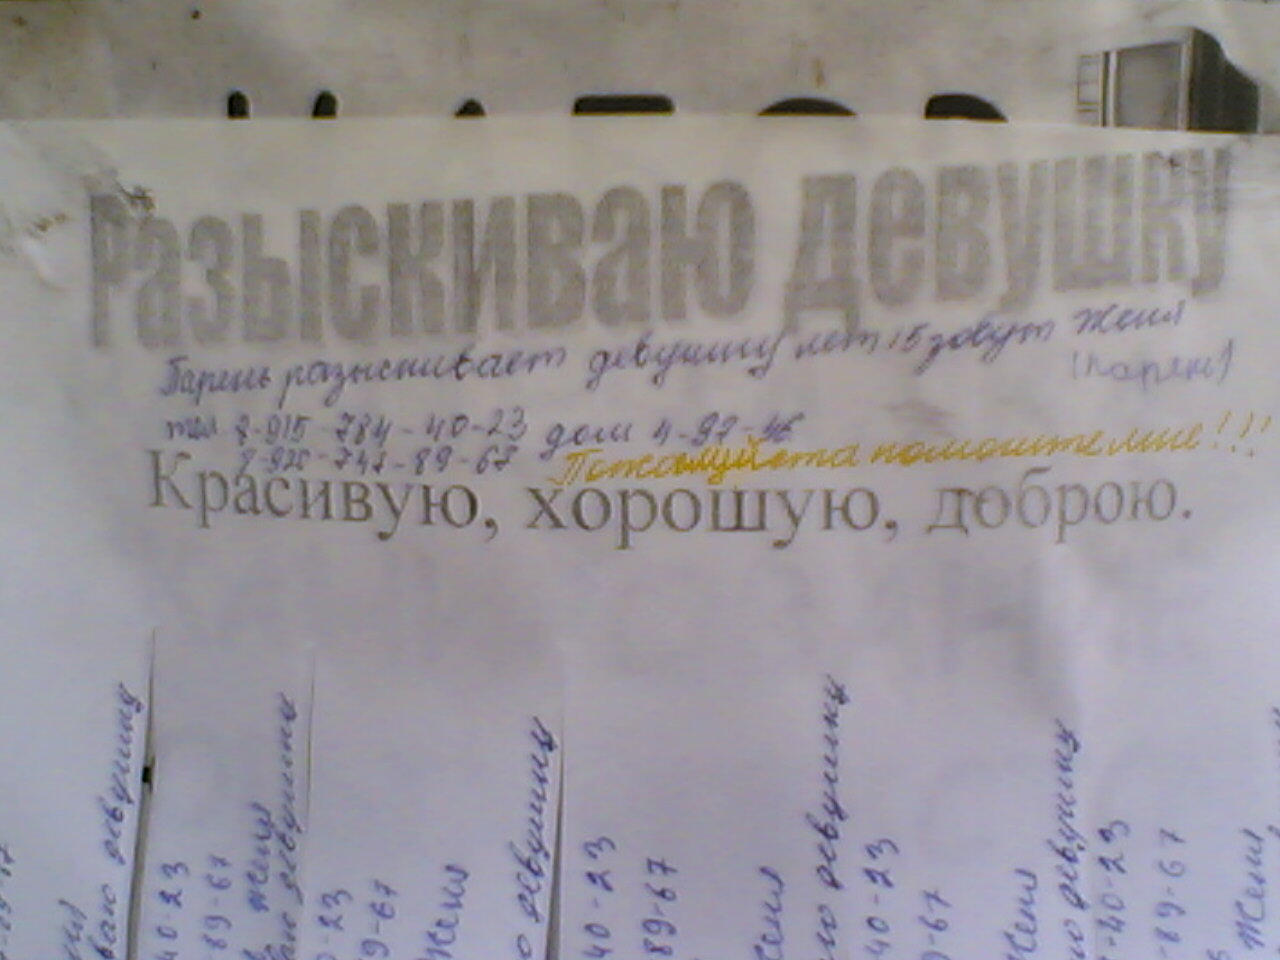 Разыскиваю девушку
Парень разыскивает девушку лет 15 зовут Женя
(парень)
тел 8-915-784-40-23 дом 4-97-46
Пожалуйста помогите мне!!!
Красивую, хорошую, доброю.
девушку
40-23
89-67
Женя
девушку
-23
9-67
Женя
девушку
40-23
89-67
Женя
девушку
40-23
9-67
Женя
девушку
-40-23
89-67
Женя